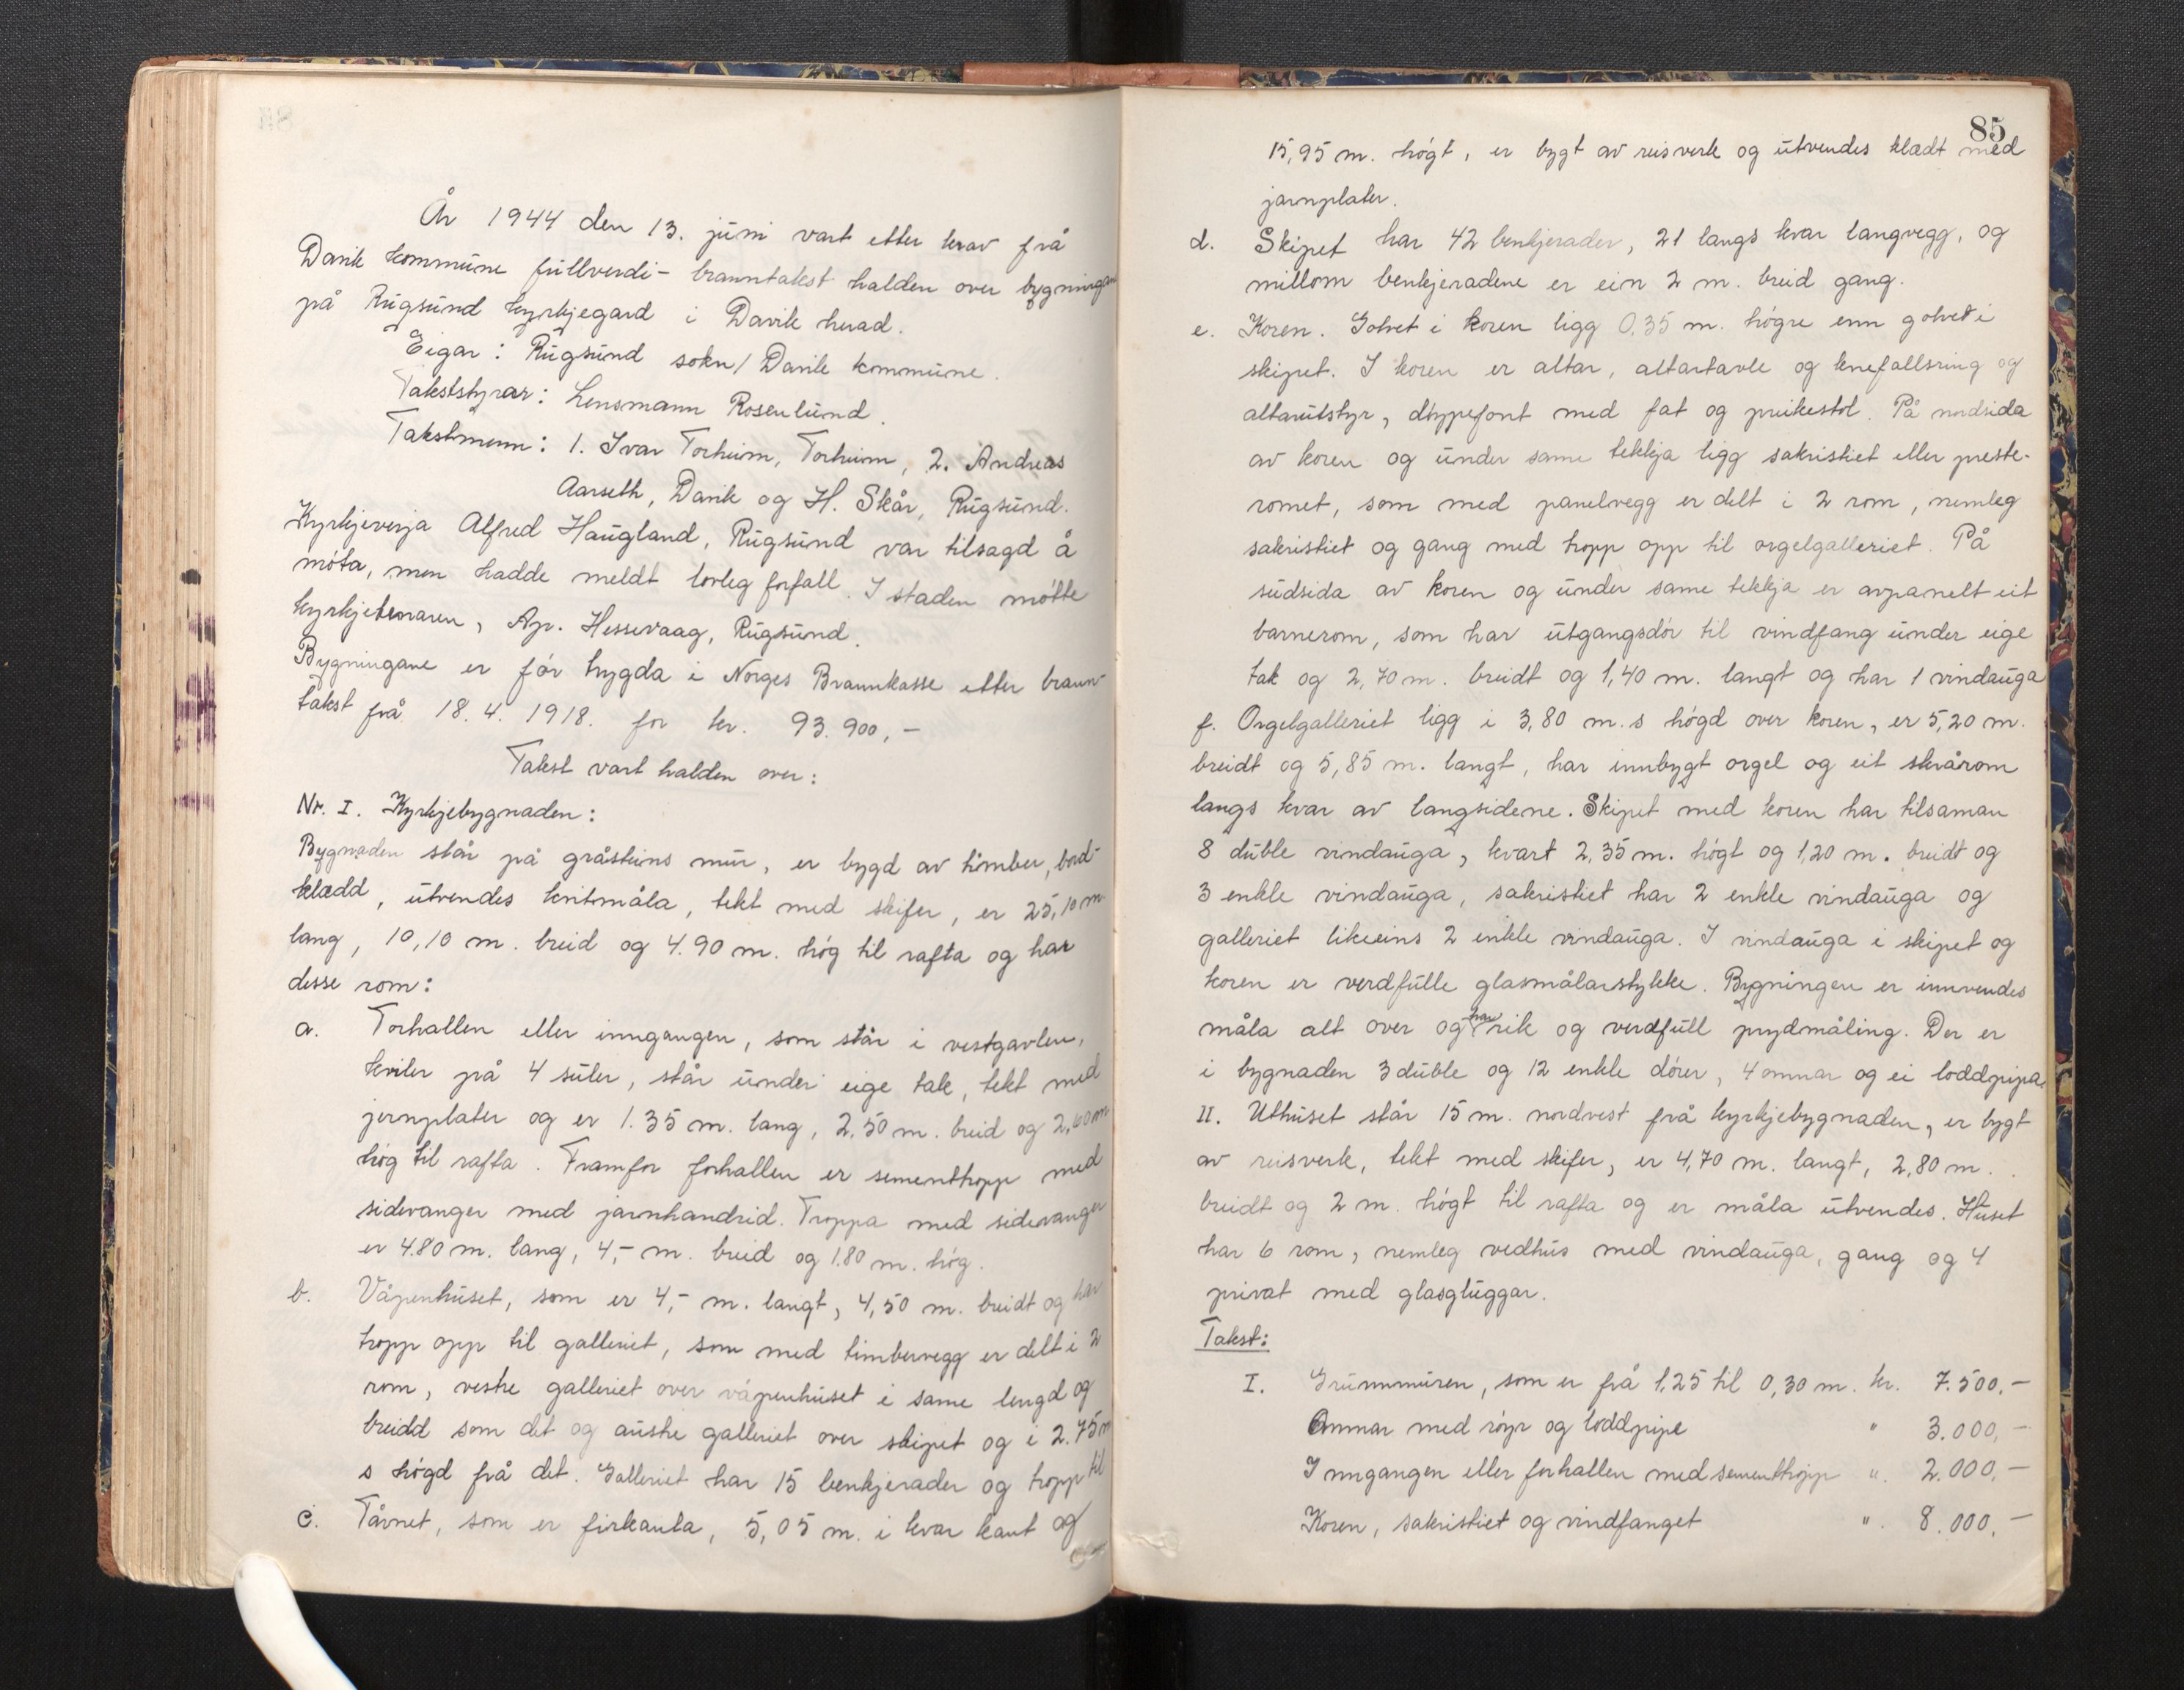 År 1944 den 13. juni vart etter krav frå
Davik kommune fullverdi- branntakst halden over bygningane
på Rugsund kyrkjegard i Davik herad.
Eigar: Rugsund sokn/Davik kommune.
Takststyrar: Lensmann Rosenlund.
Takstmenn: 1. Ivar Torheim, Torheim, 2. Andreas
Aarseth, Davik og H. Skår, Rugsund.
Kyrkjeverja Alfred Haugland, Rugsund var tilsagd å
møta, men hadde meldt lovleg forfall. I staden møtte
kyrkjetenaren, Ap. Hessevaag, Rugsund.
Bygningane er før trygda i Norges Brannkasse etter brann-
takst frå 18.4.1918. for kr. 93.900,-
Takst vart halden over:
Nr. I. Kyrkjebygnaden:
Bygnaden står på gråsteins mur, er bygd av timber, bord-
klædd, utvendes kvitmåla, tekt med skifer, er 25,10 m
lang, 10,10 m. breid og 4.90 m. høg til rafta og har
desse rom:
a. Forhallen eller inngangen, som står i vestgavlen,
kviler på 4 suler, står under eige tak, tekt med
jernplater og er 1.35 m. lang, 2,50 m. breid og 2,60 m
høg til rafta. Framfor forhallen er sementtropp med
sidevanger med jarnhandrid. Troppa med sidevanger
er 4.80 m. lang, 4,- m. breid og 1.80 m. høg.
b. Våpenhuset, som er 4,- m. langt, 4,50 m. breidt og har
tropp opp til galleriet, som med timbervegg er delt i 2
rom, vestre galleriet over våpenhuset i same lengd og
breidd som det og austre galleriet over skipet og i 2.75 m
s høgd frå det. Galleriet har 15 benkjerader og tropp til
c. Tårnet, som er firkanta, 5,05 m. i kvar kant og
85
15,95 m. høgt, er bygt av reisverk og utvendes klædt med
jarnplater.
d. Skipet har 42 benkjerader, 21 langs kvar langvegg, og
millom benkjeradene er ein 2 m. breid gang.
e. Koren. Golvet i koren ligg 0.35 m. høgre enn golvet i
skipet. I koren er altar, altartavle og knefallsring og
altarutstyr, døypefont med fat og preikestol. På nordsida
av koren og under same tekkja ligg sakristiet eller preste-
romet, som med panelvegg er delt i 2 rom, nemleg
sakristiet og gang med tropp opp til orgelgalleriet. På
sudsida av koren og under same tekkja er avpanelt eit
barnerom, som har utgangsdør til vindfang under eige
tak og 2,70 m. breidt og 1,40 m. langt og har 1 vindauga
f. Orgelgalleriet ligg i 3,80 m.s høgd over koren, er 5,20 m.
breidt og 5,85 m. langt, har innbygt orgel og eit skrårom
langs kvar av langsidene. Skipet med koren har tilsaman
8 duble vindauga, kvart 2,35 m. høgt og 1,20 m. breidt og
3 enkle vindauga, sakristiet har 2 enkle vindauga og
galleriet likeeins 2 enkle vindauga. I vindauga i skipet og
koren er verdfulle glasmålarstykke. Bygningen er innvendes
måla alt over og har rik og verdfull prydmåling. Der er
i bygnaden 3 duble og 12 enkle dører, 4 omnar og ei loddpipa.
II. Uthuset står 15 m. nordvest frå kyrkjebygnaden, er bygt
av reisverk, tekt med skifer, er 4,70 m. langt, 2,80 m.
breidt og 2 m. høgt til rafta og er måla utvendes. Huset
har 6 rom, nemleg vedhus med vindauga, gang og 4
privat med glasgluggar.
Takst:
I. Grunnmuren, som er frå 1,25 til 0,30 m. kr. 7.500.-
Omnar med røyr og loddpipe " 3.000,-
Inngangen eller forhallen med sementtropp ". 2.000,-
Koren, sakristiet og vindfanget ". 8.000,-